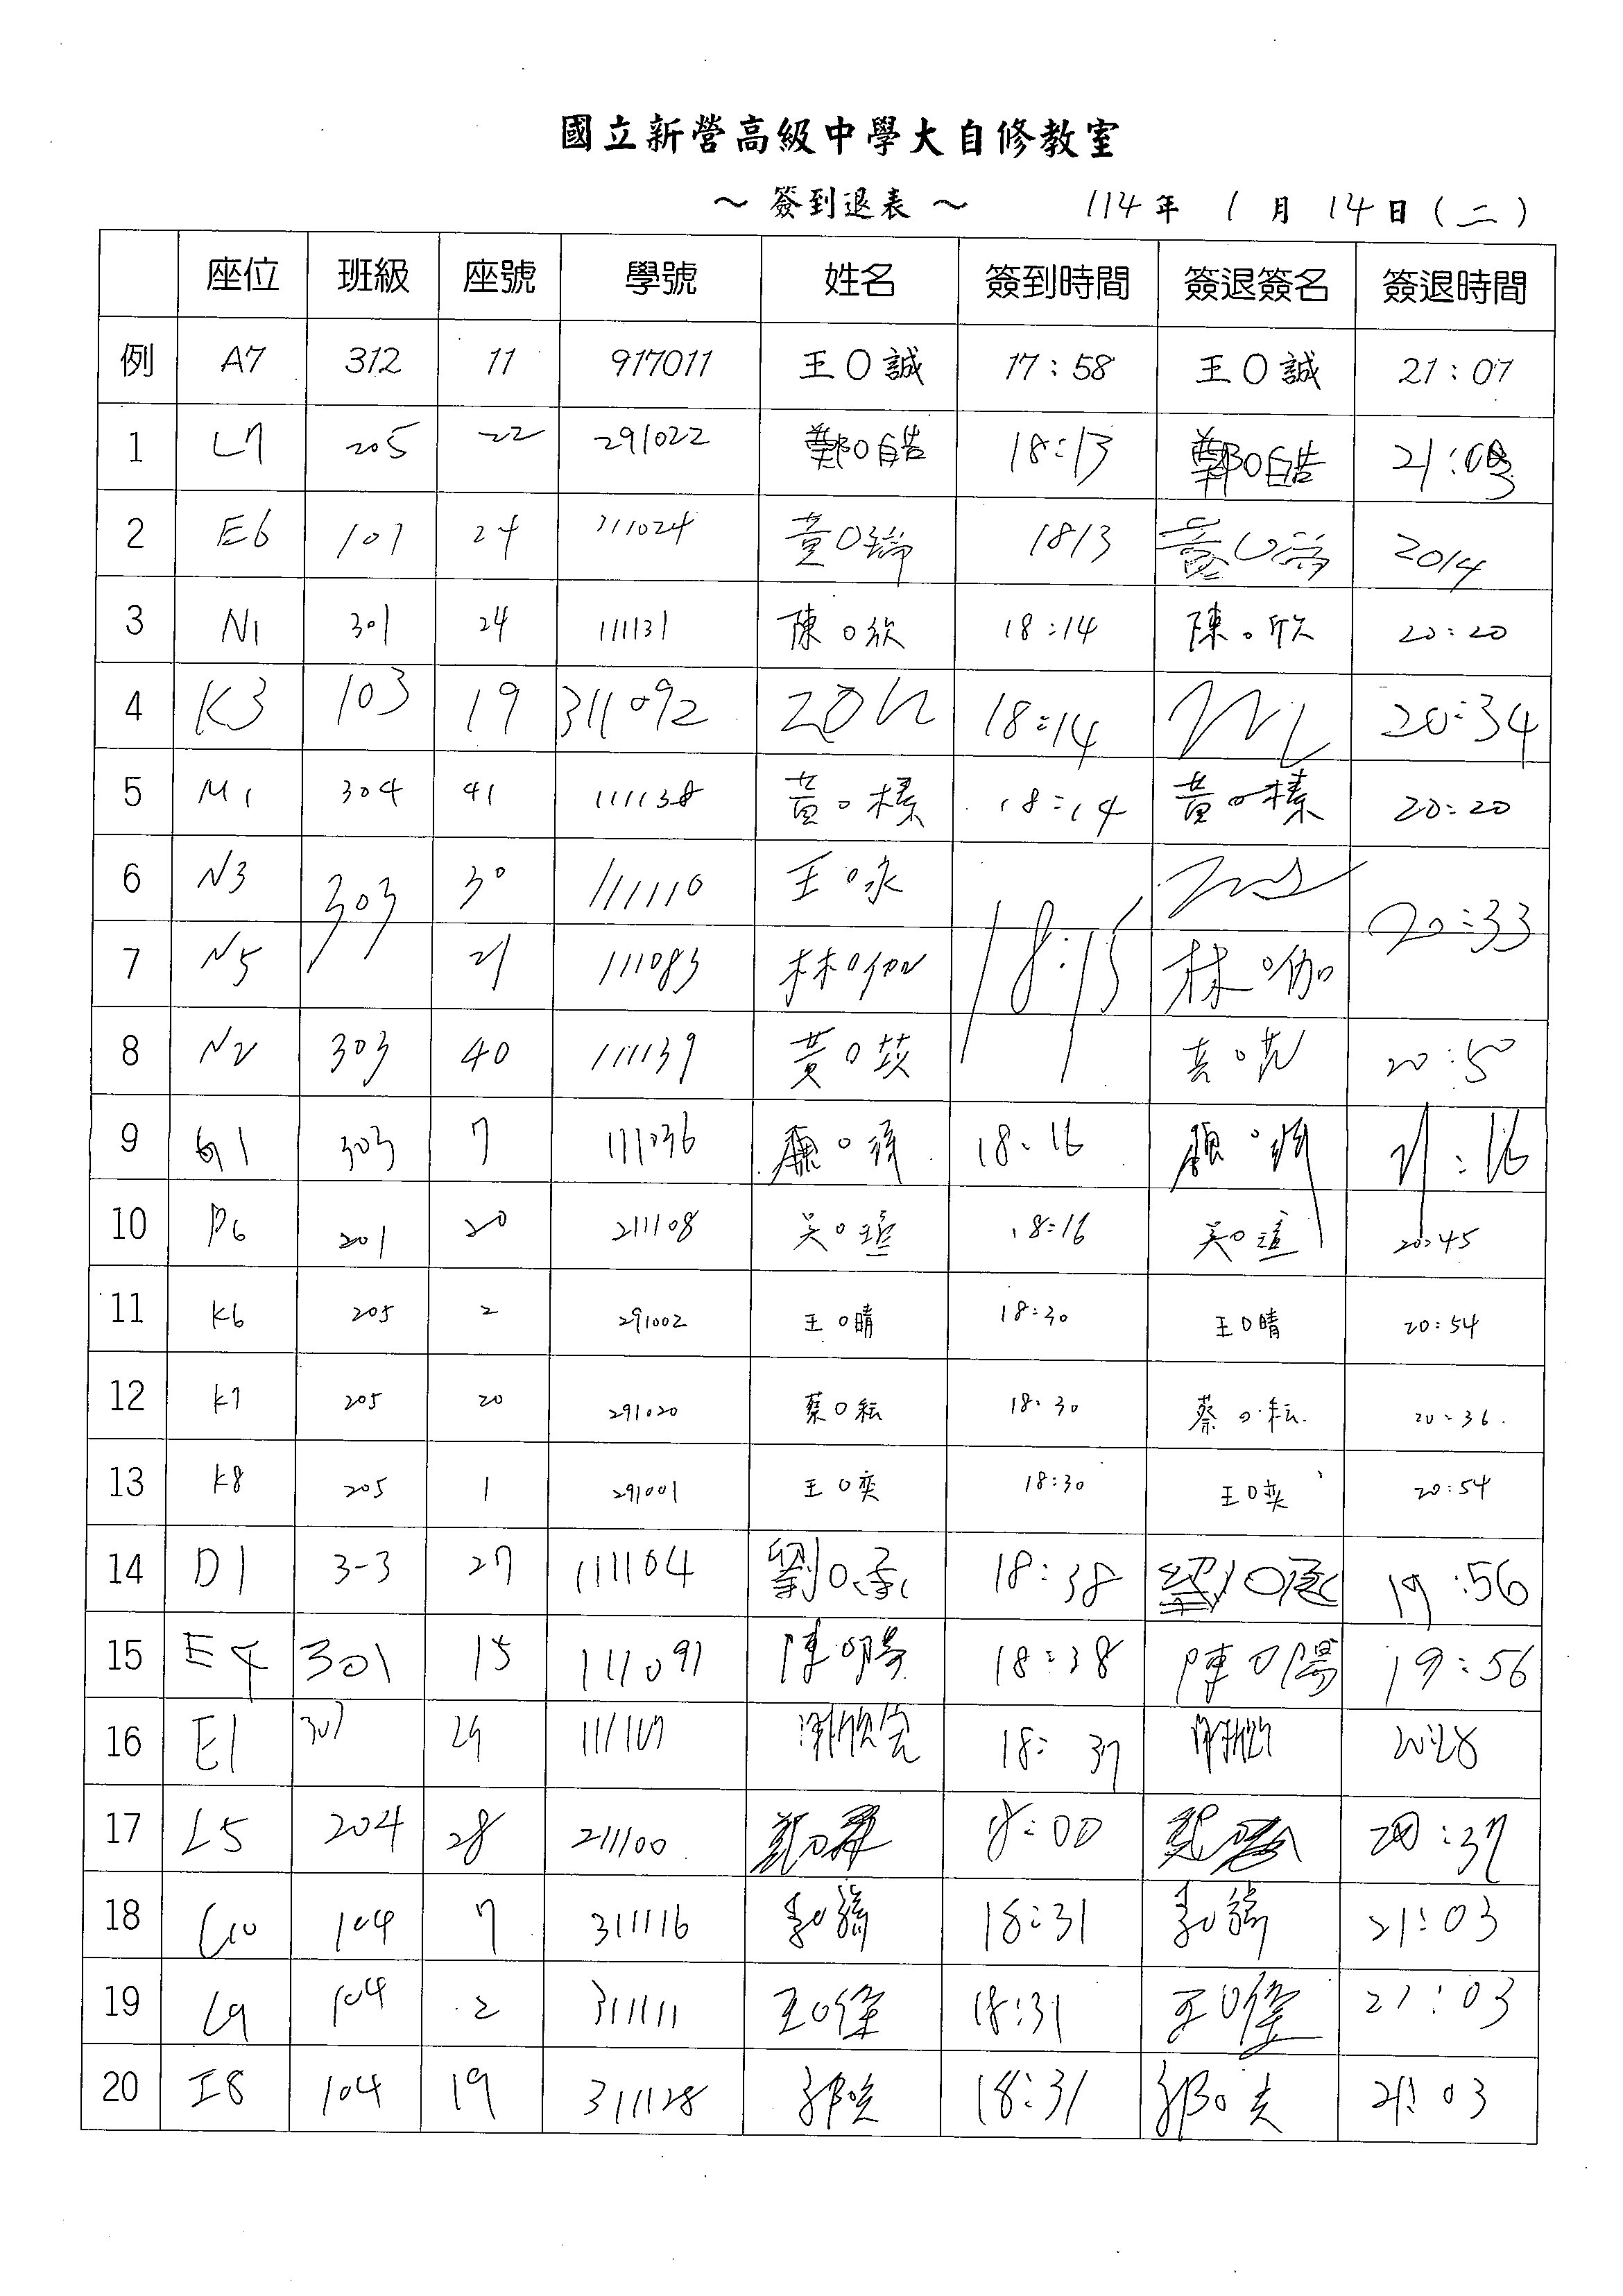 國立新營高級中學大自修教室
～ 簽到退表 ～ 114年 1月 14日(二)
座位 班級 座號 學號 姓名 簽到時間 簽退簽名 簽退時間
例 A7 312 11 917011 王O誠 17:58 王O誠 21:07
1 L7 205 22 291022 鄭O皓 18:13 鄭O皓
2 E6 107 24 311024 黃O 1813 2014
3 N1 301 24 111131 陳O欣 18:14 陳O欣 20:20
4 K3 103 19 311092 18:14 20:34
5 M1 304 41 111138 黃O榛 18:14 黃O榛 20:20
6 N3 303 30 111110 王O永 18:15 20:33
7 N5 21 111083 林O伽 林O伽
8 N2 303 40 111139 黃O苡 20:50
9 G1 303 7 111036 18:16 21:16
10 P6 201 20 211108 吳O瑄 18:16 吳O瑄 20:45
11 K6 205 2 291002 王O晴 18:30 王O晴 20:54
12 K7 205 20 291020 蔡O耘 18:30 蔡O耘 20:36
13 K8 205 1 291001 王O奕 18:30 王O奕 20:54
14 D1 3-3 27 111104 劉O 18:38 19:56
15 E4 301 15 111091 陳O陽 18:38 陳O陽 19:56
16 E1 307 29 18:37 20:28
17 L5 204 28 211100 8:00 20:37
18 104 7 311116 18:31 21:03
19 104 2 311111 王O 18:31 王O 21:03
20 I8 104 19 311128 郭O 18:31 郭O 21:03